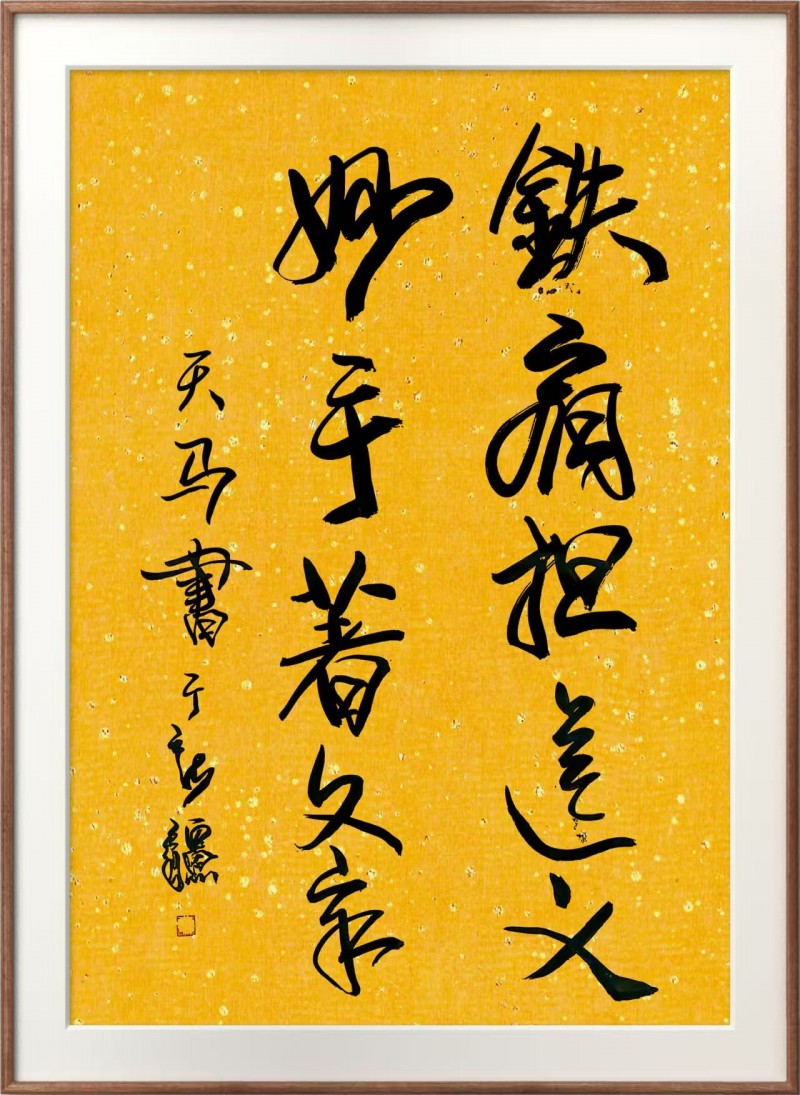 鉄肩担道义
妙手著文章
天马書于